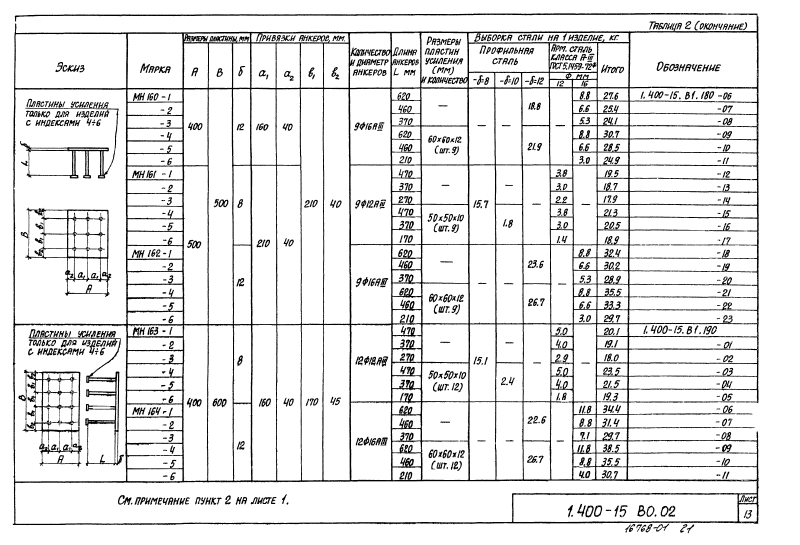 Таблица 2 (окончание)
Эскиз | Марка | Размеры пластины, мм | Привязки анкеров, мм. | Количество и диаметр анкеров | Длина анкеров L мм | Размеры пластин усиления (мм) и количество | Выборка стали на 1 изделие, кг. | Обозначение
А | В | б | а₁ | а₂ | в₁ | в₂ | Профильная сталь | Арм. сталь класса А-III ГОСТ 5.1459-72* | Итого
-δ=8 | -δ=10 | -δ=12 | Ф мм | 12 | 16
Пластины усиления только для изделий с индексами 4÷6
МН 160-1 | 400 | 500 | 12 | 160 | 40 | 210 | 40 | 9Ф16АIII | 620 | — | — | — | 18.8 | — | 8.8 | 27.6 | 1.400-15.В1.180-06
-2 | 460 | 6.6 | 25.4 | -07
-3 | 370 | 5.3 | 24.1 | -08
-4 | 620 | 60×60×12 (шт. 9) | 21.9 | 8.8 | 30.7 | -09
-5 | 460 | 6.6 | 28.5 | -10
-6 | 210 | 3.0 | 24.9 | -11
МН 161-1 | 500 | 8 | 210 | 40 | 9Ф12АIII | 470 | — | 15.7 | — | — | 3.8 | — | 19.5 | -12
-2 | 370 | 3.0 | 18.7 | -13
-3 | 270 | 2.2 | 17.9 | -14
-4 | 470 | 50×50×10 (шт. 9) | 1.8 | 3.8 | 21.3 | -15
-5 | 370 | 3.0 | 20.5 | -16
-6 | 170 | 1.4 | 18.9 | -17
МН 162-1 | 12 | 9Ф16АIII | 620 | — | — | — | 23.6 | — | 8.8 | 32.4 | -18
-2 | 460 | 6.6 | 30.2 | -19
-3 | 370 | 5.3 | 28.9 | -20
-4 | 620 | 60×60×12 (шт. 9) | 26.7 | 8.8 | 35.5 | -21
-5 | 460 | 6.6 | 33.3 | -22
-6 | 210 | 3.0 | 29.7 | -23
Пластины усиления только для изделий с индексами 4÷6
МН 163-1 | 400 | 600 | 8 | 160 | 40 | 170 | 45 | 12Ф12АIII | 470 | — | 15.1 | — | — | 5.0 | — | 20.1 | 1.400-15.В1.190
-2 | 370 | 4.0 | 19.1 | -01
-3 | 270 | 2.9 | 18.0 | -02
-4 | 470 | 50×50×10 (шт. 12) | 2.4 | 5.0 | 23.5 | -03
-5 | 370 | 4.0 | 21.5 | -04
-6 | 170 | 1.8 | 19.3 | -05
МН 164-1 | 12 | 12Ф16АIII | 620 | — | — | — | 22.6 | — | 11.8 | 34.4 | -06
-2 | 460 | 8.8 | 31.4 | -07
-3 | 370 | 7.1 | 29.7 | -08
-4 | 620 | 60×60×12 (шт. 12) | 26.7 | 11.8 | 38.5 | -09
-5 | 460 | 8.8 | 35.5 | -10
-6 | 210 | 4.0 | 30.7 | -11
См. примечание пункт 2 на листе 1.
1.400-15 В0.02
Лист
13
16768-01 21